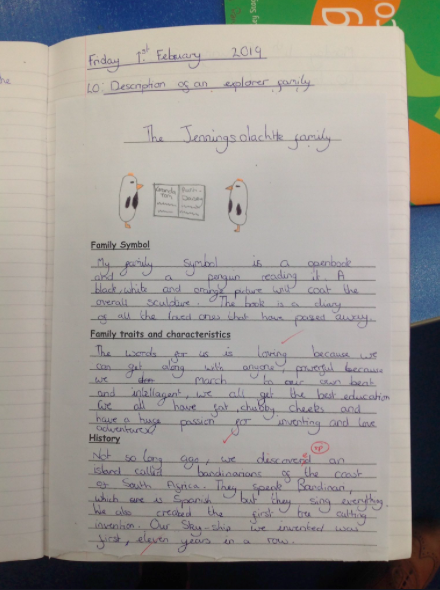 he
Friday 1st February 2019
LO: Description of an explorer family
The Jenningsalachite family
Family Symbol
My family symbol is a openbook
and a penguin reading it. A
black, white and orange picture will coat the
overall sculpture. The book is a diary
of all the loved ones that have passed away.
Family traits and characteristics
The words for us is loving because we
can get along with anyone, powerful because
we march to our own beat
and intellagent, we all get the best education
We all have fat, chubby cheeks and
have a huge passion for inventing and love
adventures.
History
Not so long ago, we discovered an
sp
island called bandinarians of the coast
of South Africa. They speak Bandinan,
which is Spanish but they sing everything.
We also created the first cutting
invention. Our Sky-ship we invented was
first, eleven years in a row.